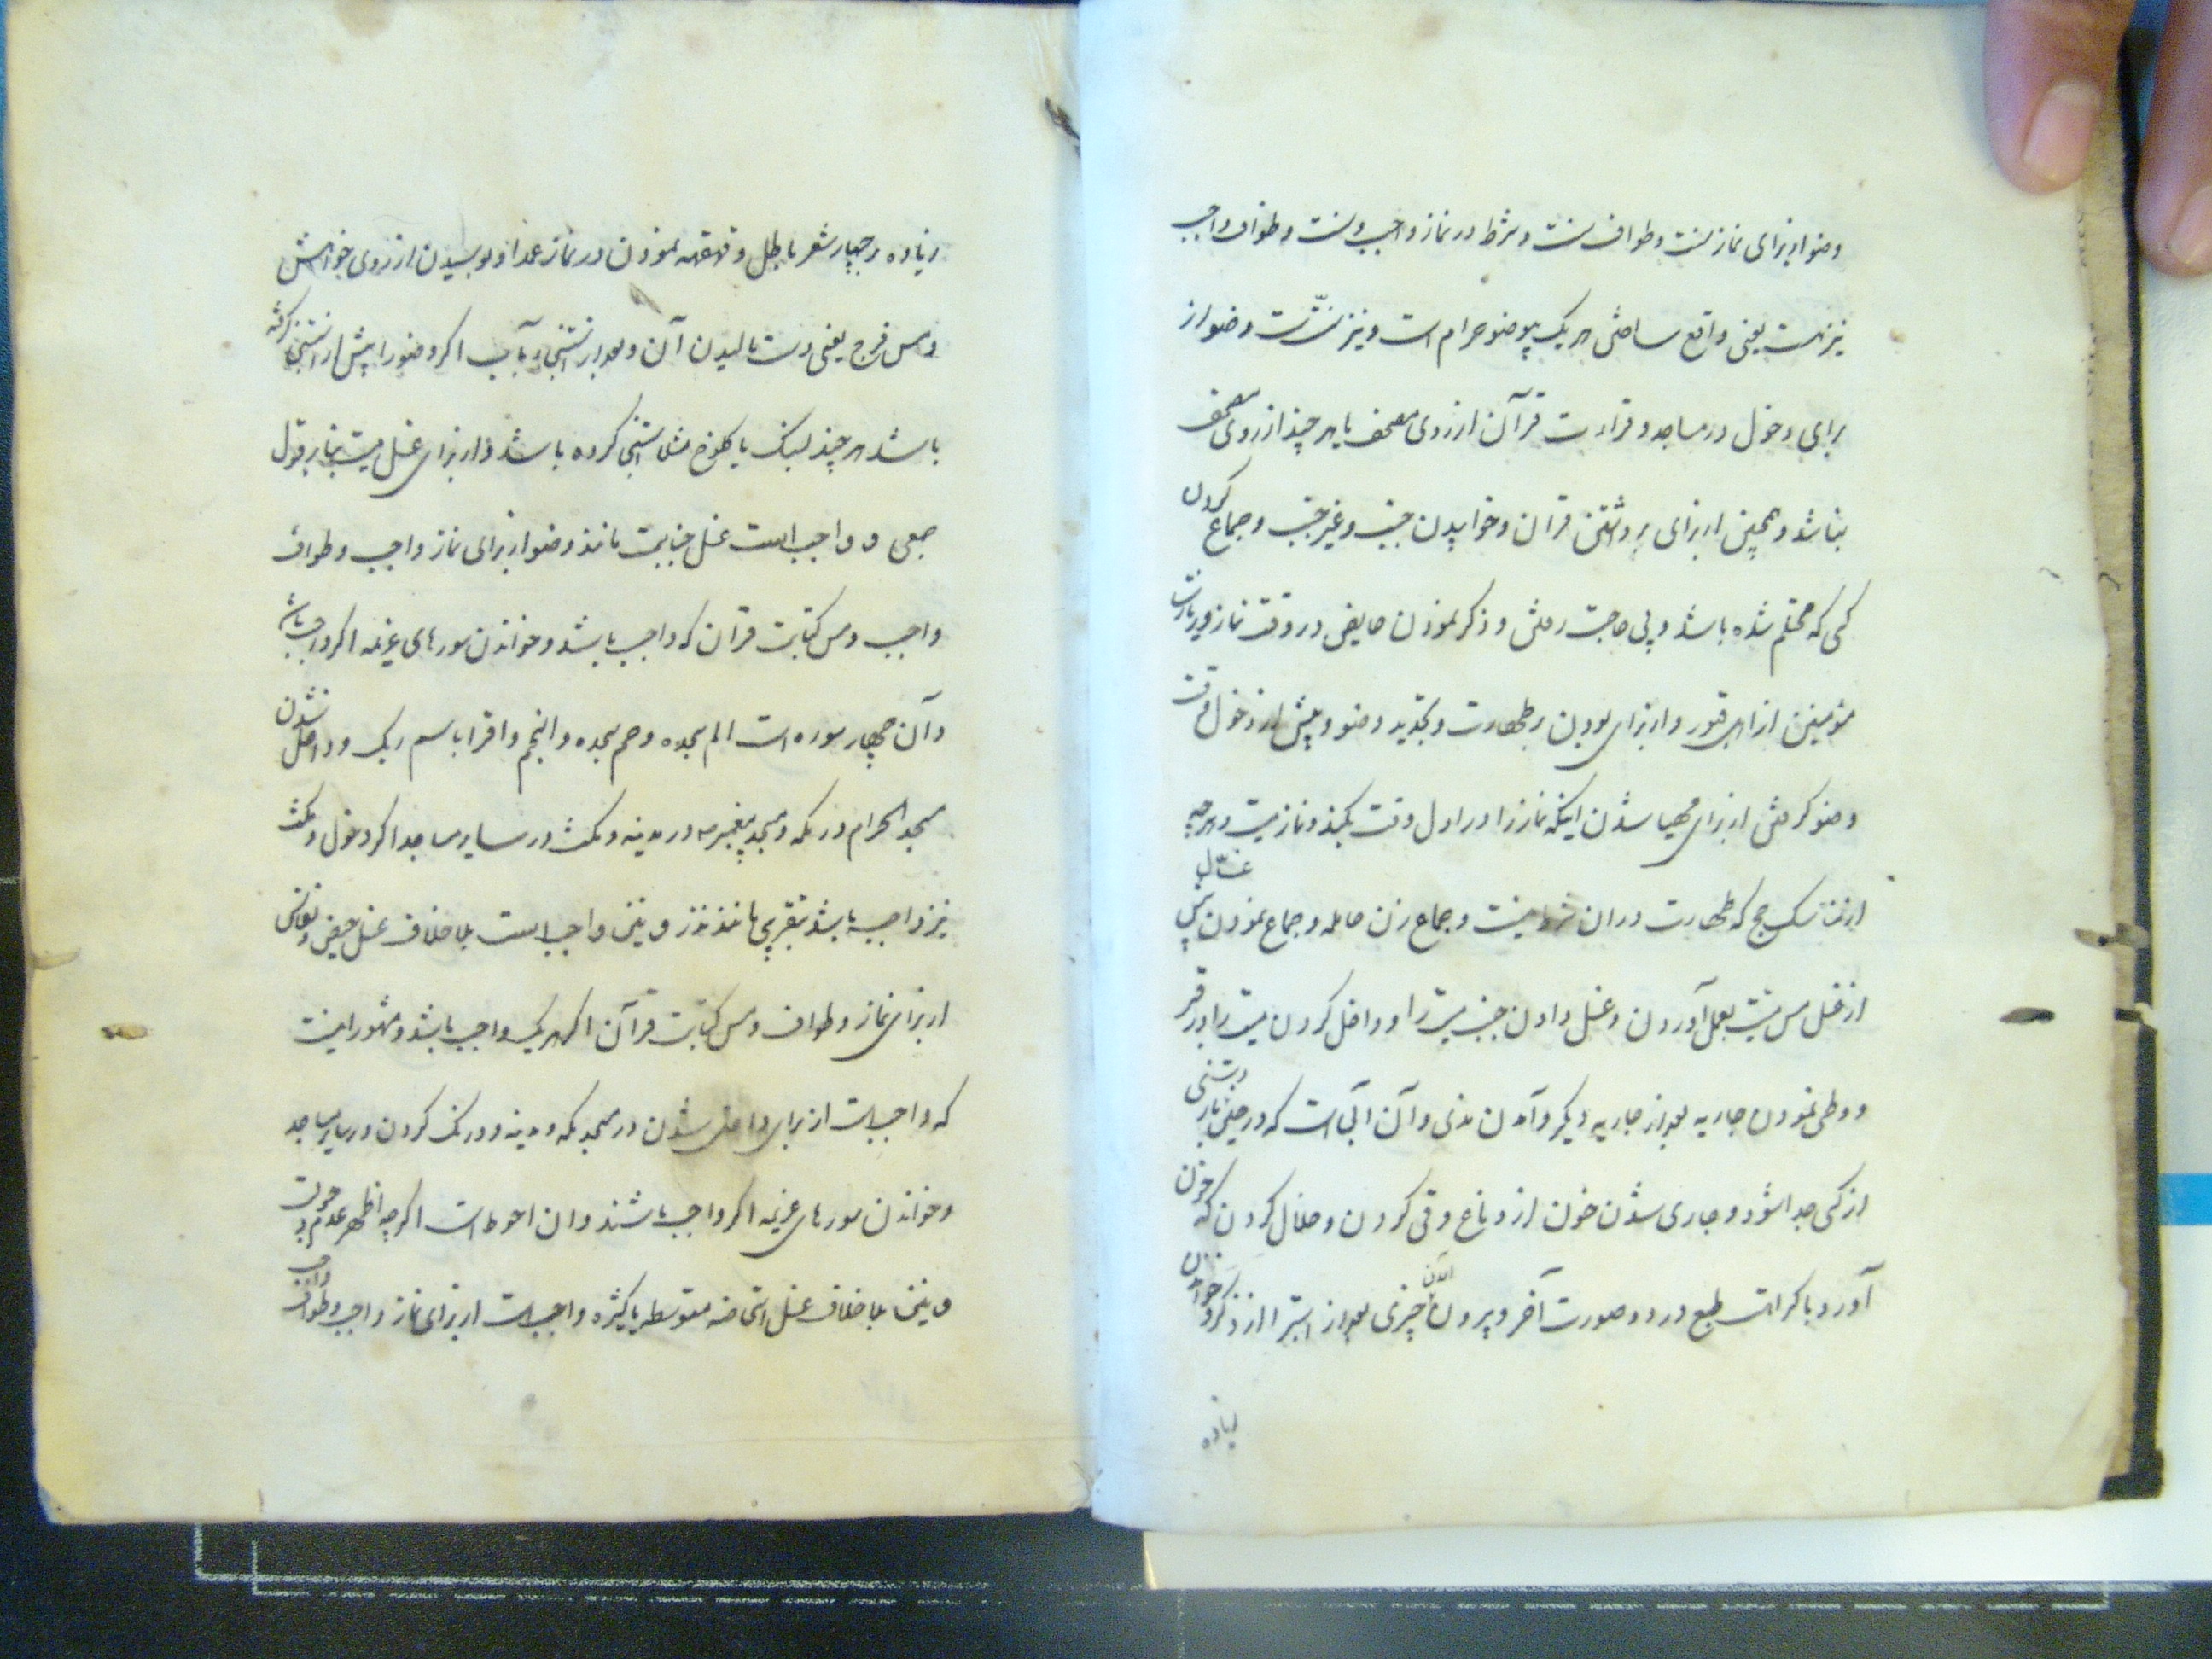 وضو از برای نماز سنت و طواف سنت و شرط در نماز واجب و سنت و طواف واجب
نیز هست یعنی واقع ساختن هر یک بی وضو حرام است و نیز سنّت است وضو از
برای دخول در مساجد و قراءت قرآن از روی مصحف یا هر چند از روی مصحف
نباشد و همچنین از برای برداشتن قران و خوابیدن جنب و غیر جنب و جماع کردن
کسی که محتلم شده باشد و پی حاجت رفتن و ذکر نمودن حایض در وقت نماز و زیارت
مؤمنین از اهل قبور و از برای بودن بر طهارت و تجدید وضو و پیش از دخول وقت
وضو کرفتن از برای مهیا شدن اینکه نماز را در اول وقت بکند و نماز میت و هر چه
از مناسک حج که طهارت در ان شرط نیست و جماع زن حامله و جماع نمودن پیش
غسل
از غسل مس میت بعمل آوردن و غسل دادن جنب میت را و داخل کردن میت را در قبر
و وطی نمودن جاریه بعد از جاریه دیکر و آمدن مذی و آن آبی است که در حین بازی
از کسی جدا شود و جاری شدن خون از دماغ و قی کردن و خلال کردن که خون
آورد با کراهت طبع در دو صورت آخر و بیرون آمدن چیزی بعد از استبرا از ذکر و خواندن
زیاده
زیاده بر چهار شعر باطل و قهقهه نمودن در نماز عمدا و بوسیدن از روی خواهش
و مس فرج یعنی دست مالیدن آن و بعد از استنجاء بآب اکر وضو را پیش از استنجا کرفته
باشد هر چند بسنک یا کلوخ مثلا استنجا کرده باشد و از برای غسل میت بنا بر قول
جمعی و واجب است غسل جنابت مانند وضو از برای نماز واجب و طواف
واجب و مس کتابت قران که واجب باشد و خواندن سورهای عزیمه اکر واجب باشد
و آن چهار سوره است الم سجده و حم سجده و النجم و اقرا باسم ربک و داخل شدن
مسجد الحرام در مکه و مسجد پیغمبر ص در مدینه و مکث در سایر مساجد اکر دخول و مکث
نیز واجب باشد بتقریبی مانند نذر و یمین واجب است بلا خلاف غسل حیض و نفاس
از برای نماز و طواف و مس کتابت قرآن اکر هر یک واجب باشد و مشهور اینست
که واجب است از برای داخل شدن در مسجد مکه و مدینه و درنک کردن در سایر مساجد
و خواندن سورهای عزیمه اکر واجب باشند و ان احوط است اکر چه اظهر عدم وجوبست
بلا خلاف غسل استحاضه متوسطه یا کثیره واجب است از برای نماز واجب و طواف واجب